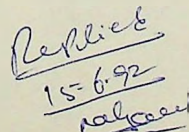 Replied
15-6-92